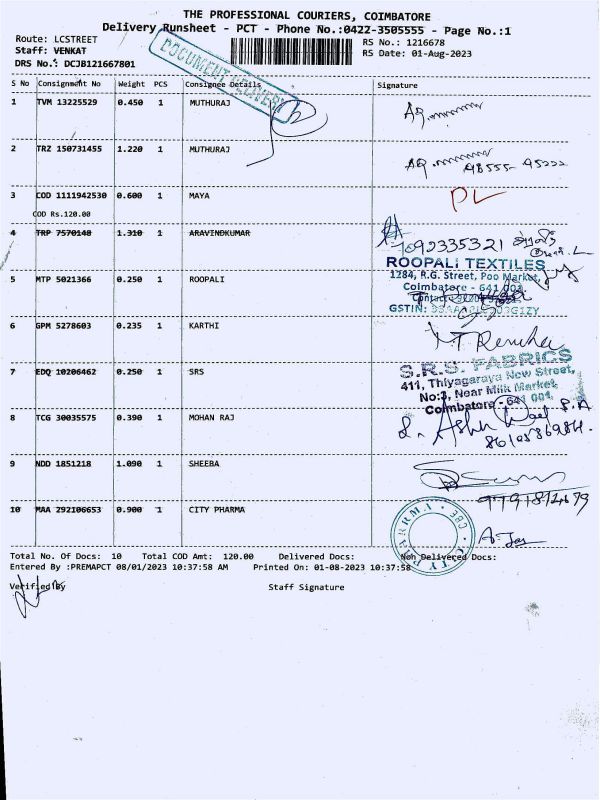 THE PROFESSIONAL COURIERS, COIMBATORE
Delivery Runsheet - PCT - Phone No.:0422-3505555 - Page No.:1
Route: LCSTREET
Staff: VENKAT
DRS No.: DCJB121667801
RS No.: 1216678
RS Date: 01-Aug-2023
DOCUMENT DELIVERY
S No Consignment No Weight PCS Consignee Details Signature
1 TVM 13225529 0.450 1 MUTHURAJ
2 TRZ 150731455 1.220 1 MUTHURAJ
98555-45222
3 COD 1111942530 0.600 1 MAYA
COD Rs.120.00
4 TRP 7570148 1.310 1 ARAVINDKUMAR
7092335321
ROOPALI TEXTILES
1284, R.G. Street, Poo Market,
5 MTP 5021366 0.250 1 ROOPALI
Coimbatore - 641 001.
GSTIN:
6 GPM 5278603 0.235 1 KARTHI
S.R.S. FABRICS
7 EDQ 10206462 0.250 1 SRS
411, Thiyagaraya New Street,
No:3, Near Milk Market
Coimbatore - 641 001.
8 TCG 30035575 0.390 1 MOHAN RAJ
9 NDD 1851218 1.090 1 SHEEBA
10 MAA 292106653 0.900 1 CITY PHARMA
Total No. Of Docs: 10 Total COD Amt: 120.00 Delivered Docs: Non Delivered Docs:
Entered By :PREMAPCT 08/01/2023 10:37:58 AM Printed On: 01-08-2023 10:37:58
Verified By Staff Signature